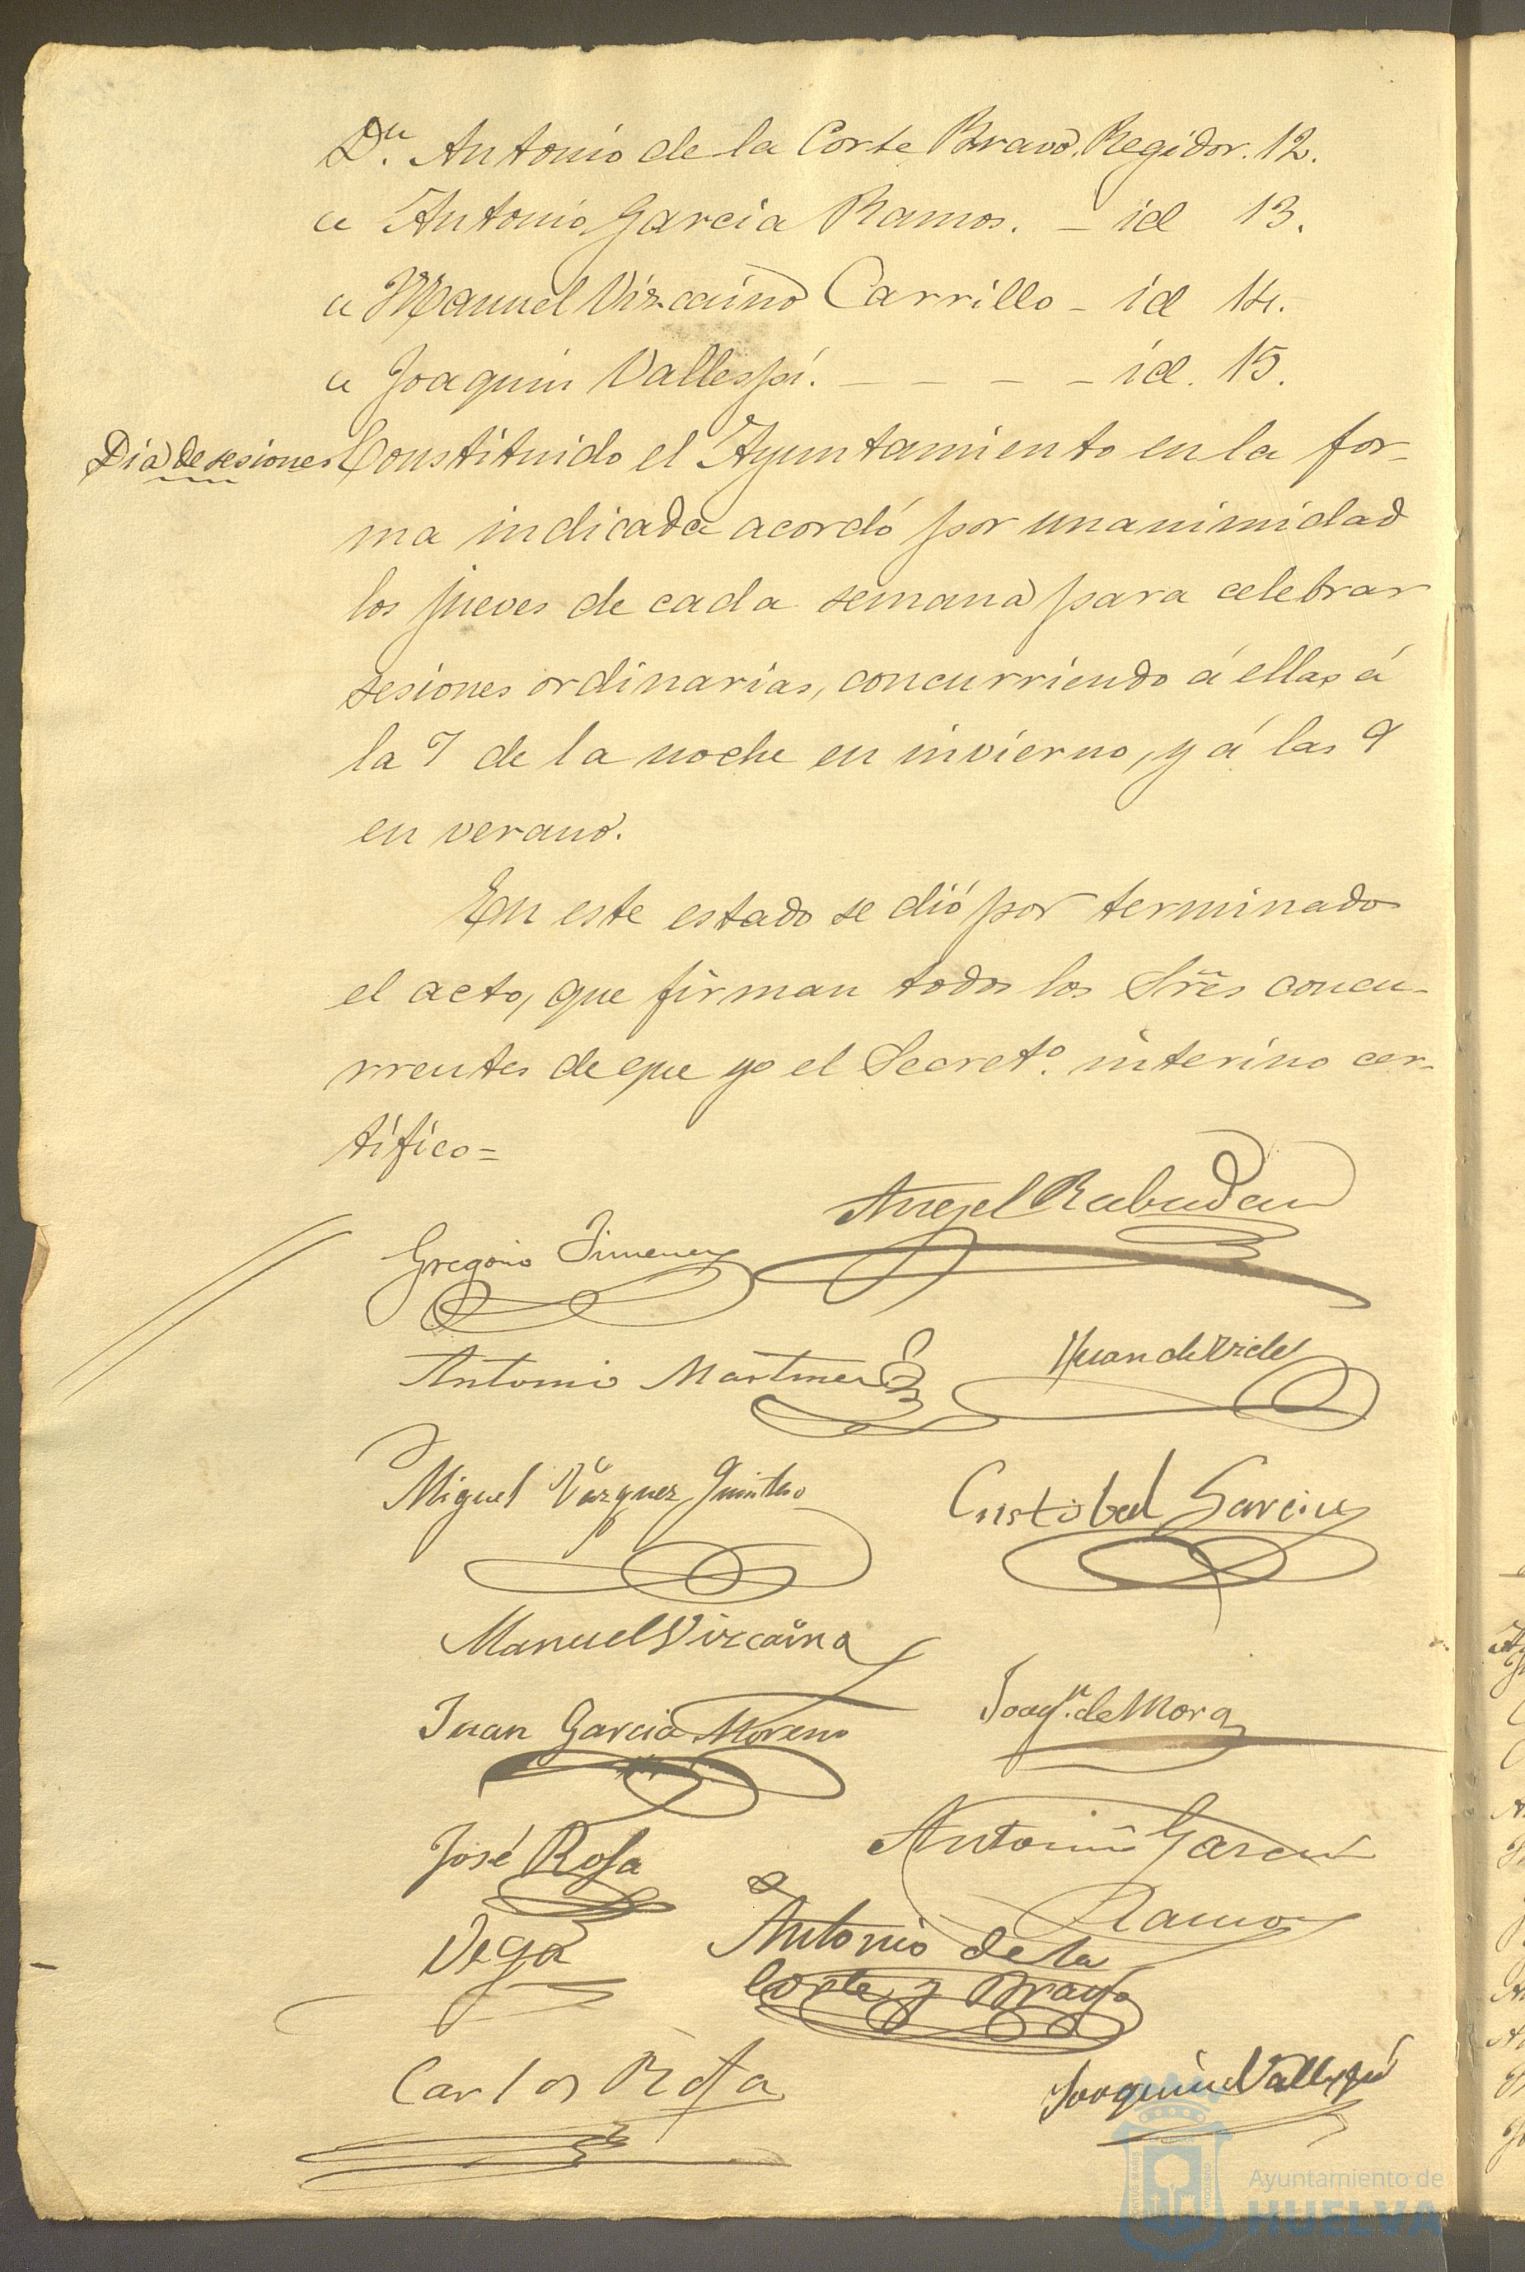 Dn. Antonio de la Corte Bravo, Regidor. 12.
" Antonio Garcia Ramos. - id 13.
" Manuel Vizcaino Carrillo - id 14.
" Joaquin Vallespí. - - - - id. 15.
Dia de sesiones
Constituido el Ayuntamiento en la for-
ma indicada acordó por unanimidad
los jueves de cada semana para celebrar
sesiones ordinarias, concurriendo á ellas á
la 7 de la noche en invierno, y á las 9
en verano.
En este estado se dió por terminado
el acto, que firman todos los Sres concu-
rrentes de que yo el Secret.o interino cer-
tífico=
Angel Rabadan
Gregorio Jimenez
Antonio Martinez
Juan de Vides
Miguel Vázquez Quintero
Cristobal Garcia
Manuel Vizcaino
Juan Garcia Moreno
Joaqn. de Mora
José Rofa
Vega
Antonio Garcia
Ramos
Antonio de la
Corte y Bravo
Carlos Rofa
Joaquin Vallespí
Ayuntamiento de
HUELVA